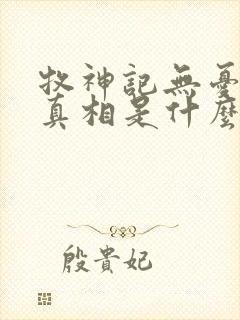 牧神記無憂
真相是什麼
殷貴妃